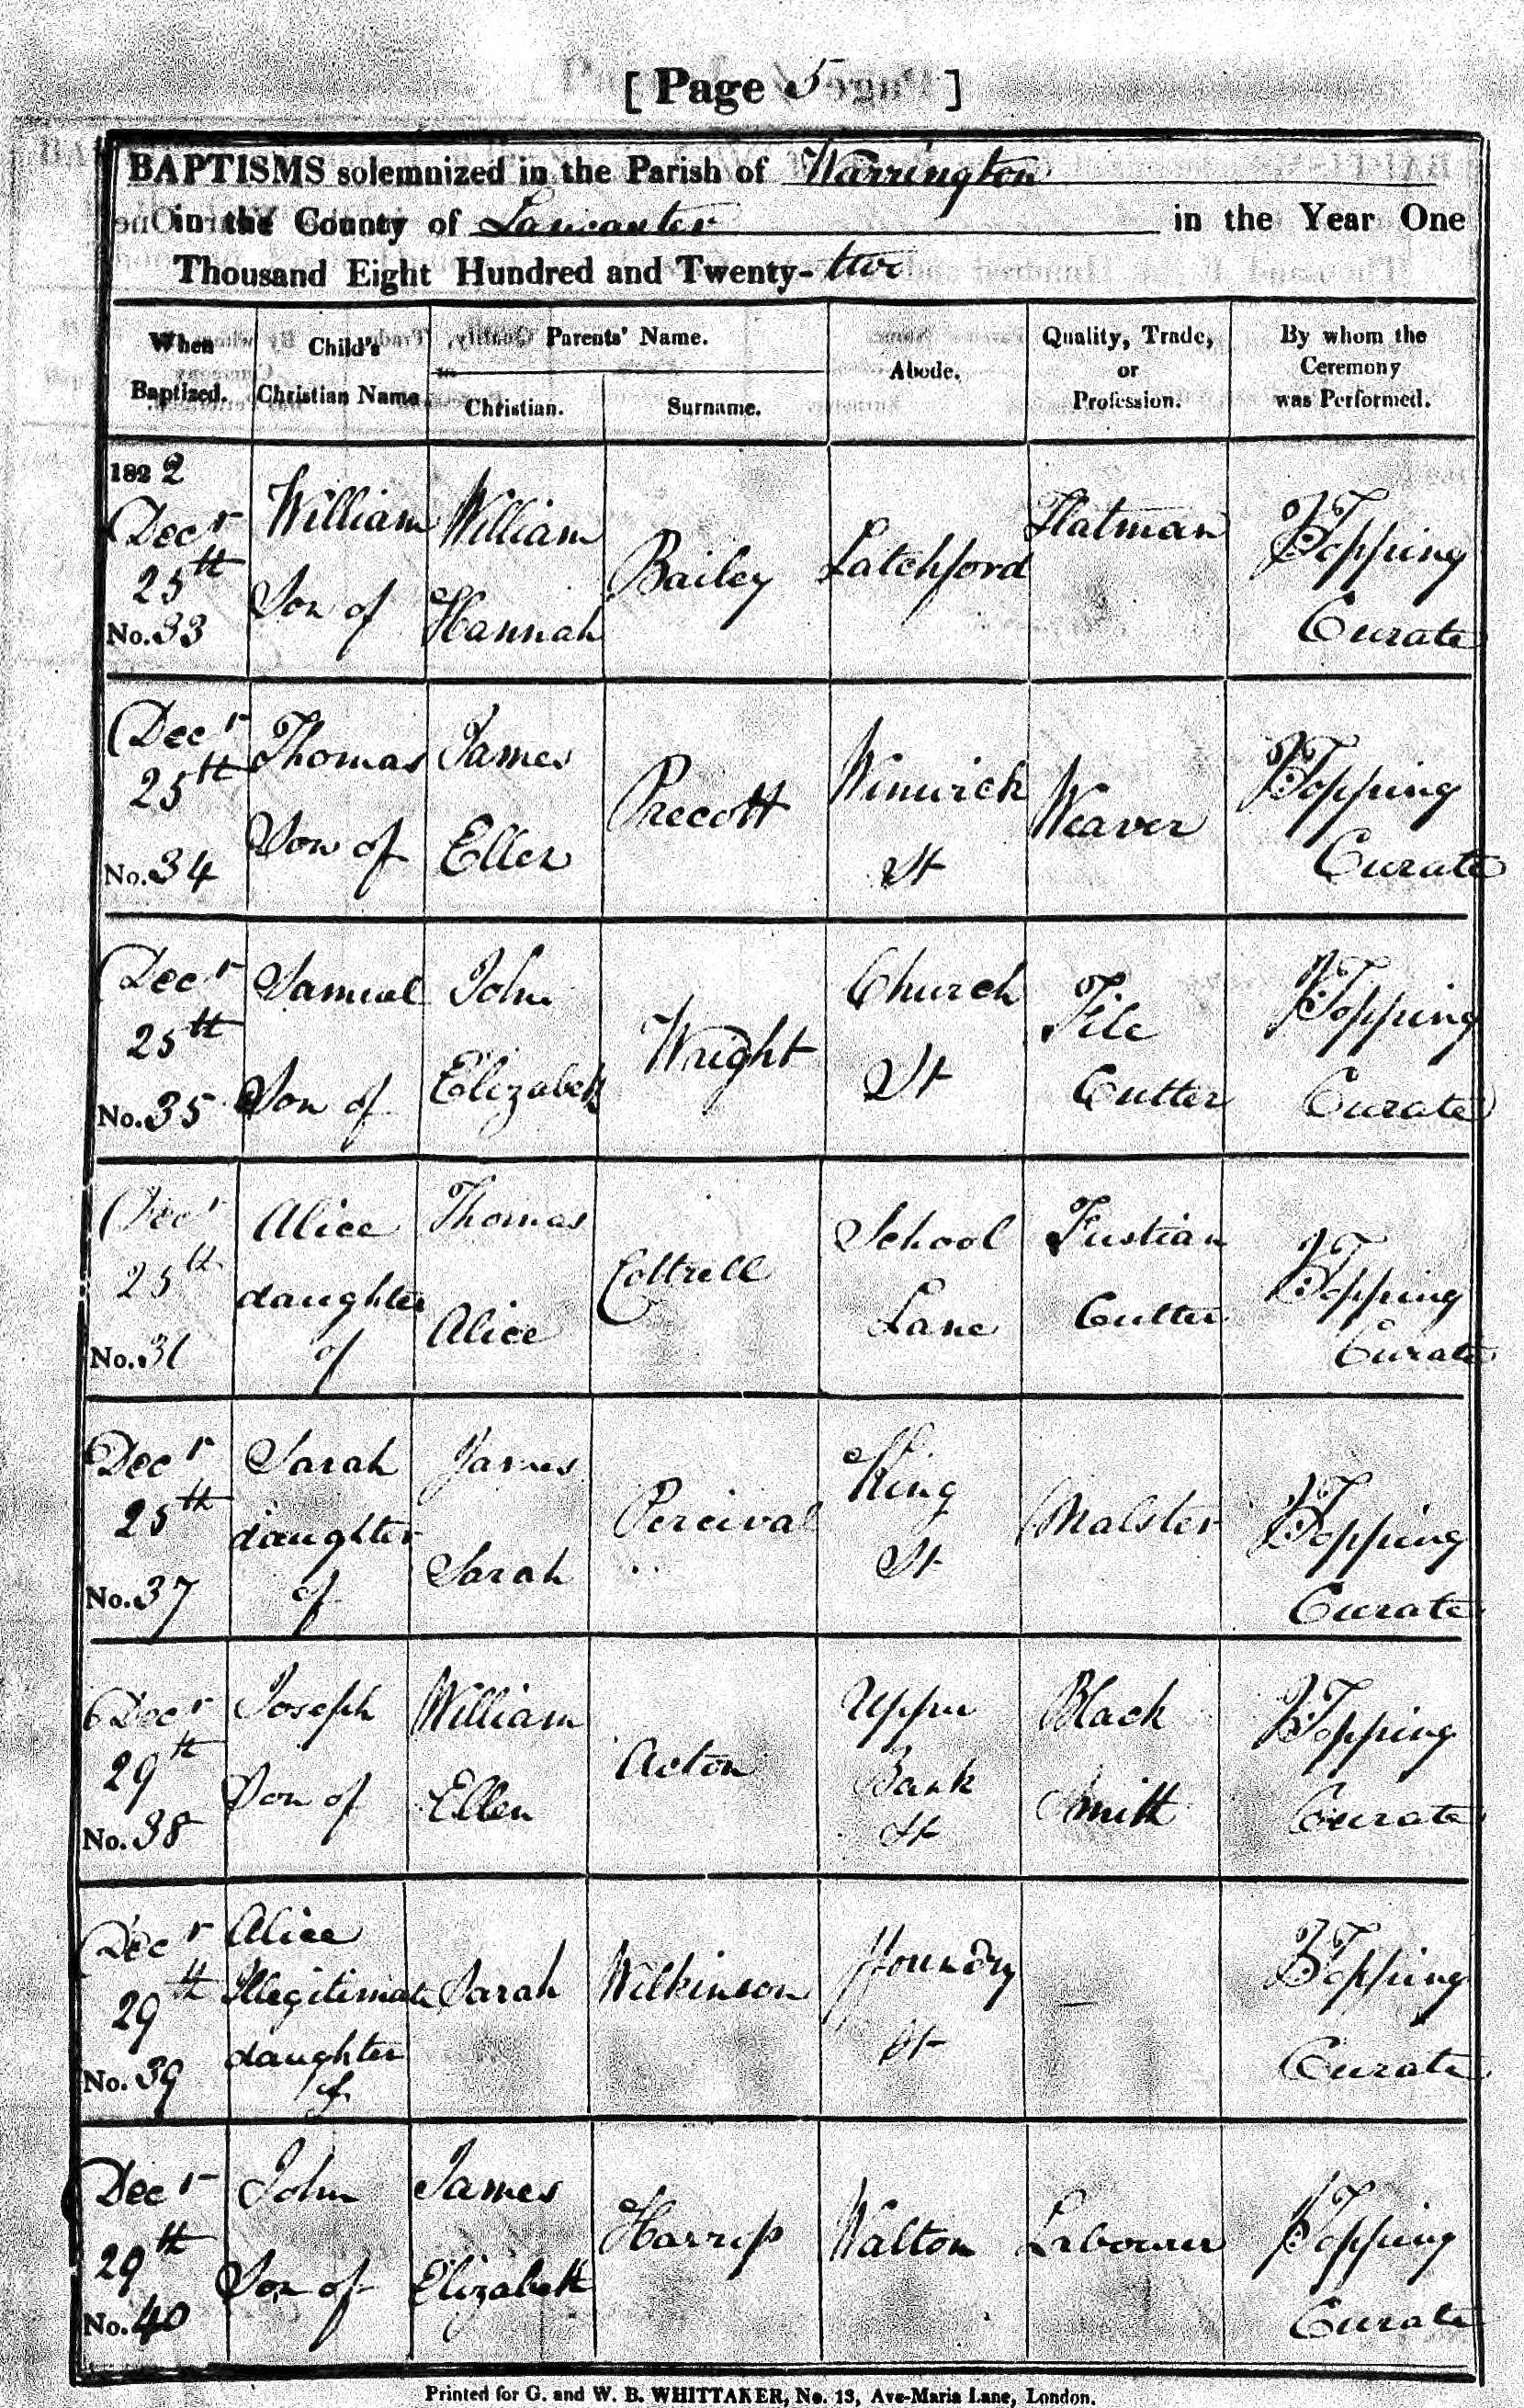 [ Page 5 ]
BAPTISMS solemnized in the Parish of Warrington
in the County of Lancaster in the Year One
Thousand Eight Hundred and Twenty-two
When Baptized.
Child's Christian Name
Parents' Name.
Christian.
Surname.
Abode.
Quality, Trade, or Profession.
By whom the Ceremony was Performed.
1822
Decr
25th
No. 33
William
Son of
William
Hannah
Bailey
Latchford
Flatman
Topping
Curate
Decr
25th
No. 34
Thomas
Son of
James
Ellen
Precott
Winwick
St
Weaver
Topping
Curate
Decr
25th
No. 35
Samuel
Son of
John
Elizabeth
Wright
Church
St
File
Cutter
Topping
Curate
Decr
25th
No. 36
Alice
daughter
of
Thomas
Alice
Cottrell
School
Lane
Fustian
Cutter
Topping
Curate
Decr
25th
No. 37
Sarah
daughter
of
James
Sarah
Percival
King
St
Malster
Topping
Curate
Decr
29th
No. 38
Joseph
Son of
William
Ellen
Acton
Upper
Bank
St
Black
Smith
Topping
Curate
Decr
29th
No. 39
Alice
Illegitimate
daughter
of
Sarah
Wilkinson
ffoundry
St
—
Topping
Curate
Decr
29th
No. 40
John
Son of
James
Elizabeth
Harrip
Walton
Labourer
Topping
Curate
Printed for G. and W. B. WHITTAKER, No. 13, Ave-Maria Lane, London.